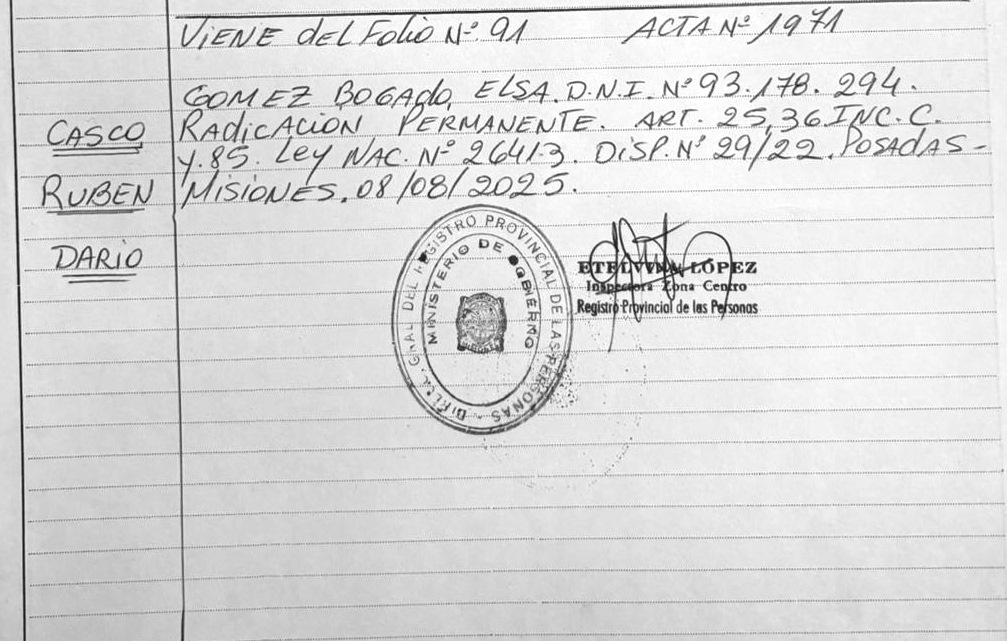 VIENE del Folio Nº 91 ACTA Nº 1971
GOMEZ BOGADO, ELSA. D.N.I. Nº 93.178.294.
RADICACION PERMANENTE. ART. 25, 36. INC. C.
Y. 85. Ley NAC. Nº 26413. DISP. Nº 29/22. POSADAS-
MISIONES, 08/08/2025.
CASCO
RUBEN
DARIO
GRAL DEL REGISTRO PROVINCIAL DE LAS PERSONAS
MINISTERIO DE GOBIERNO
ETELVINA LÓPEZ
Inspectora Zona Centro
Registro Provincial de las Personas